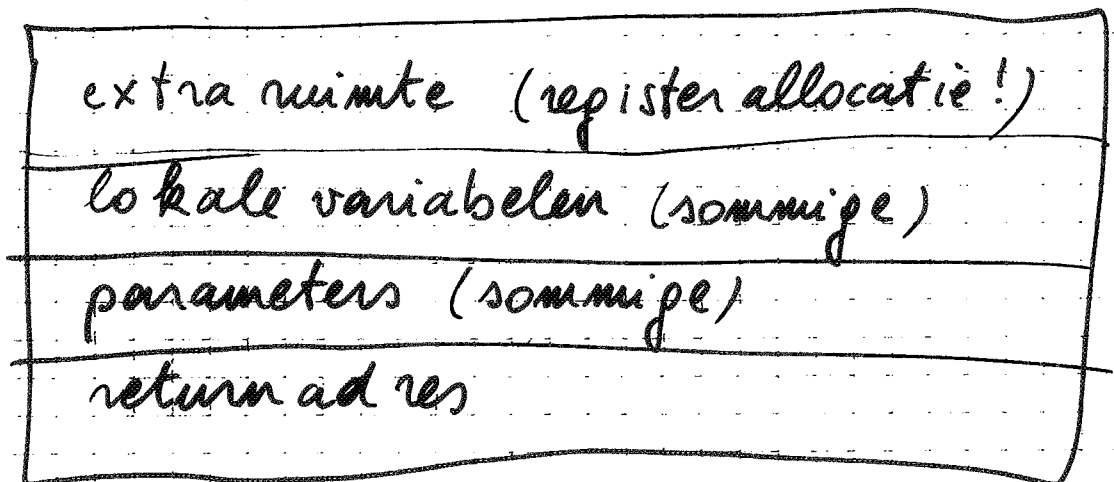 extra ruimte (register allocatie!)
lokale variabelen (sommige)
parameters (sommige)
return adres